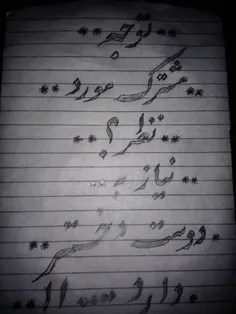 **توجه**
**مشترک مورد**
**نظر؟**
نیاز به
**دوست دختر**
وارد